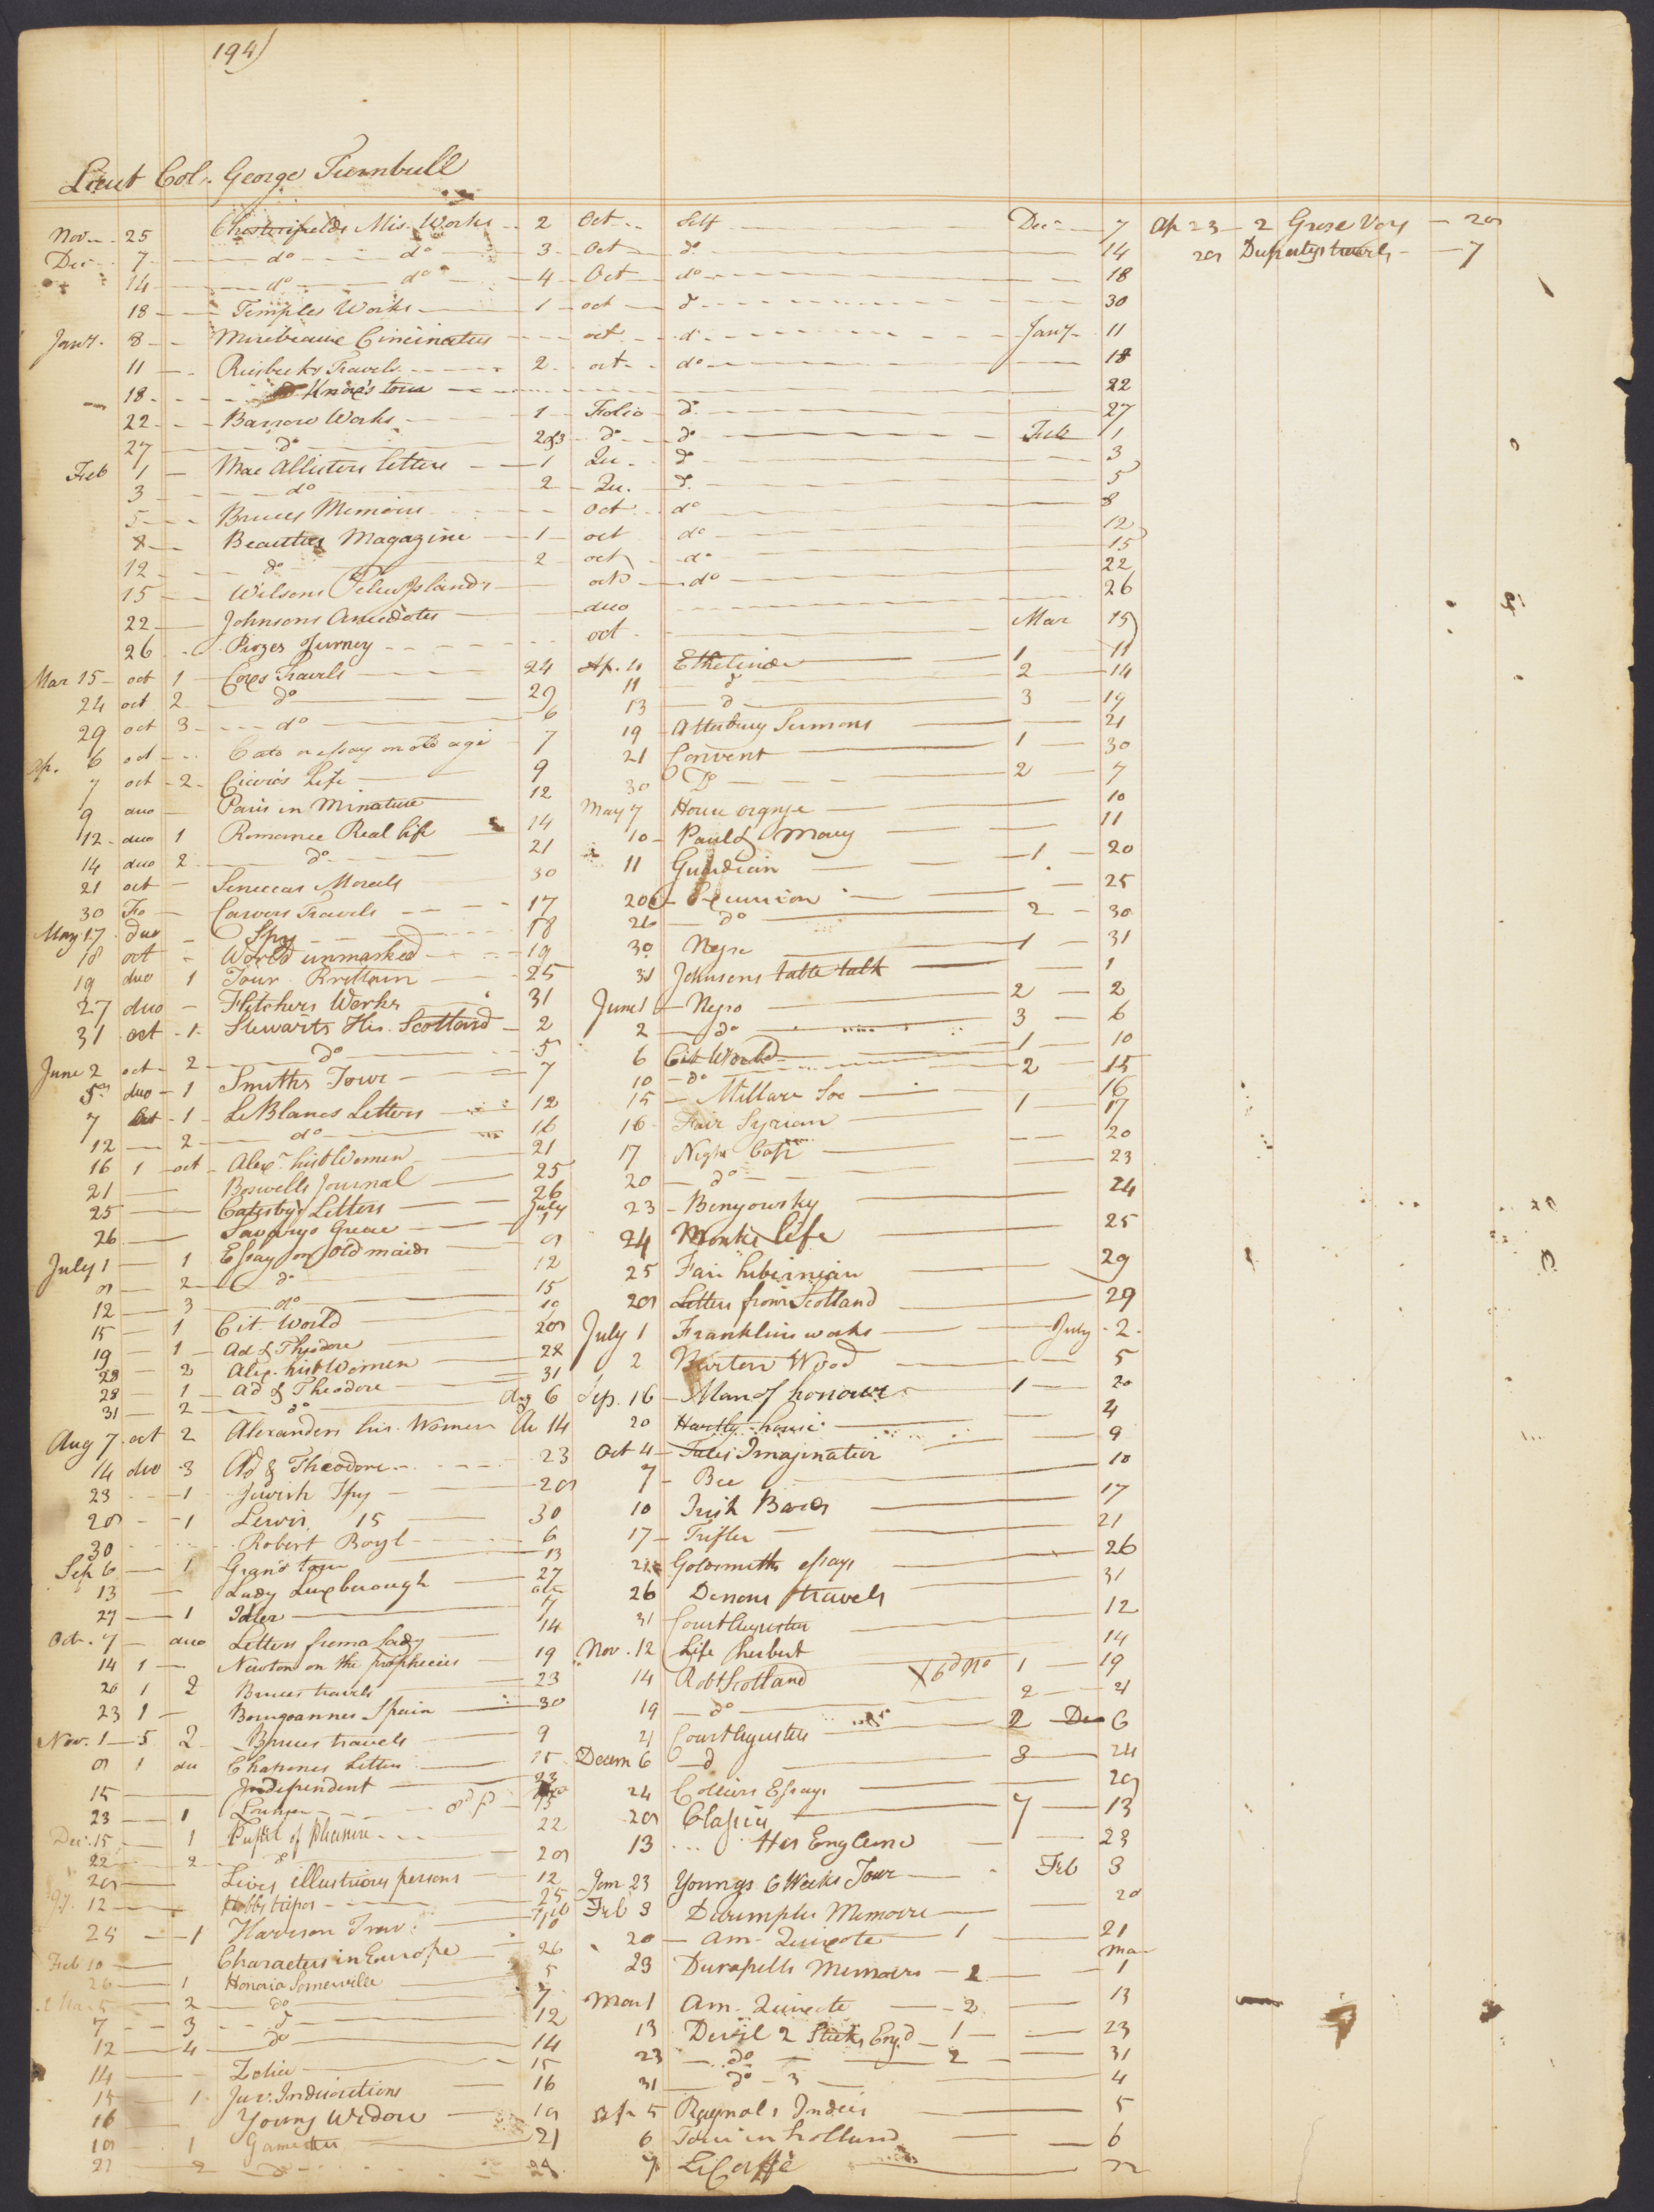 194)
Lieut Col. George Turnbull
Nov 25 Chesterfields Mis. Works 2 Oct Self Dec 7
Dec 7 do do 3 Oct do 14
14 do do 4 Oct do 18
18 Temples Works 1 oct do 30
Jany. 8 Cincinatus oct do Jany 11
11 Riesbecks Travels 2 oct do 18
18 Knox's tour 22
22 Barrow Works 1 Folio do 27
27 do 2&3 do do Feb 1
Feb 1 Mac Allisters letters 1 Qu. do 3
3 do 2 Qu. do 5
5 Bruces Memoirs Oct do 8
8 Beauties Magazine 1 oct do 12
12 do 2 oct do 15
15 Wilsons Pelew Islands octo do 22
22 Johnsons Anecdotes duo 26
26 Piozes Jurney oct Mar 15
Mar 15 oct 1 Coxes Travels 24
24 oct 2 do 29
29 oct 3 do 6
Ap. 6 oct Cato or essay on old age 7
7 oct 2 Cicero's Life 9
9 duo Paris in Minature 12
12 duo 1 Romance Real life 14
14 duo 2 do 21
21 oct Senecas Morals 30
30 Fo Carvers Travels 17
May 17 duo Spy 18
18 oct World unmasked 19
19 duo 1 Tour Brittain 25
27 duo Fletchers Works 31
31 oct 1 Stewarts His. Scotland 2
June 2 oct 2 do 5
5 duo 1 Smiths Tour 7
7 Oct 1 LeBlancs Letters 12
12 2 do 16
16 1 oct Alexr. hist Women 21
21 Boswells Journal 25
25 Catesbys Letters 26
26 Savarys Greece July 1
July 1 1 Essay on Old maids 9
9 2 do 12
12 3 do 15
15 1 Cit. World 19
19 1 Ad & Theodore 28
28 2 Alex. hist Women 28
28 1 Ad & Theodore 31
31 2 do Aug 6
Aug 7 oct 2 Alexanders his. Women Au 14
14 duo 3 Ad & Theodore 23
23 1 Jewish Spy 29
29 1 Lewis 15 30
30 Robert Boyl 6
Sep 6 1 Grand tour 13
13 Lady Luxborough 27
27 1 Idler 7
Oct. 7 duo Letters from a Lady 14
14 1 Newton on the prophecies 19
20 1 2 Bruces travels 23
23 1 Bourgoannes Spain 30
Nov. 1 5 2 Bruces travels 9
9 1 du Chapones Letters 15
15 Independent 23
23 1 Lounger 15
Dec. 15 1 Pupil of pleasure 22
22 2 do 29
29 Lives illustrious persons 12
12 Hobbs tripos 25
25 1 Harrison Trav. Feb 10
Feb 10 Characters in Europe 26
26 1 Honoria Somerville 5
Mar 5 2 do 7
7 3 do 12
12 4 do 14
14 Zoriada 15
15 1 Juv. Indiscretions 16
16 Young Widow 19
19 1 Gamesters 21
21 2 do 24
Ap. 10 Ethelinde 1 11
11 do 2 14
13 do 3 19
19 Atterbury Sermons 21
21 Convent 1 30
30 Do 2 7
May 7 House orange 10
10 Paul & Mary 11
11 Guardian 1 20
20 Excursion 25
26 do 2 30
30 Negro 1 31
31 Johnsons table talk 1
June 1 Negro 2 2
2 do 3 6
6 Cit World 1 10
10 do 2 15
15 Millars Soc 16
16 Fair Syrian 1 17
17 Night Cap 20
20 do 23
23 Benyowsky 24
24 Monks life 25
25 Fair hibernian 29
29 Letters from Scotland 29
July 1 Franklins works July 2
2 Burton Wood 5
Sep. 16 Man of honour 1 20
20 Hartly house 4
Oct 4 Tales Imagination 9
7 Bee 10
10 Irish Bards 17
17 Trifler 21
22 Goldsmiths essays 26
26 Denons travels 31
31 Court Augustus 12
Nov. 12 Life Cherbert 14
14 Robt Scotland 1 19
19 do 2 21
21 Court Augustus 2 De 6
Decem 6 do 3 24
24 Colliers Essays 29
29 Classics 7 13
13 His England 23
Jan 23 Youngs 6 Weeks Tour Feb 3
Feb 3 Dalrymples Memoirs 20
20 Am. Quixote 1 21
23 Memoirs 2 Mar 1
Mar 1 Am. Quixote 2 13
13 Devil 2 Sticks Engd 1 23
23 do 2 31
31 do 3 4
Ap 5 Raynals Indies 5
6 Tour in holland 6
7
Ap 23 2 Grose Voy 29
29 Dupatys travels 7